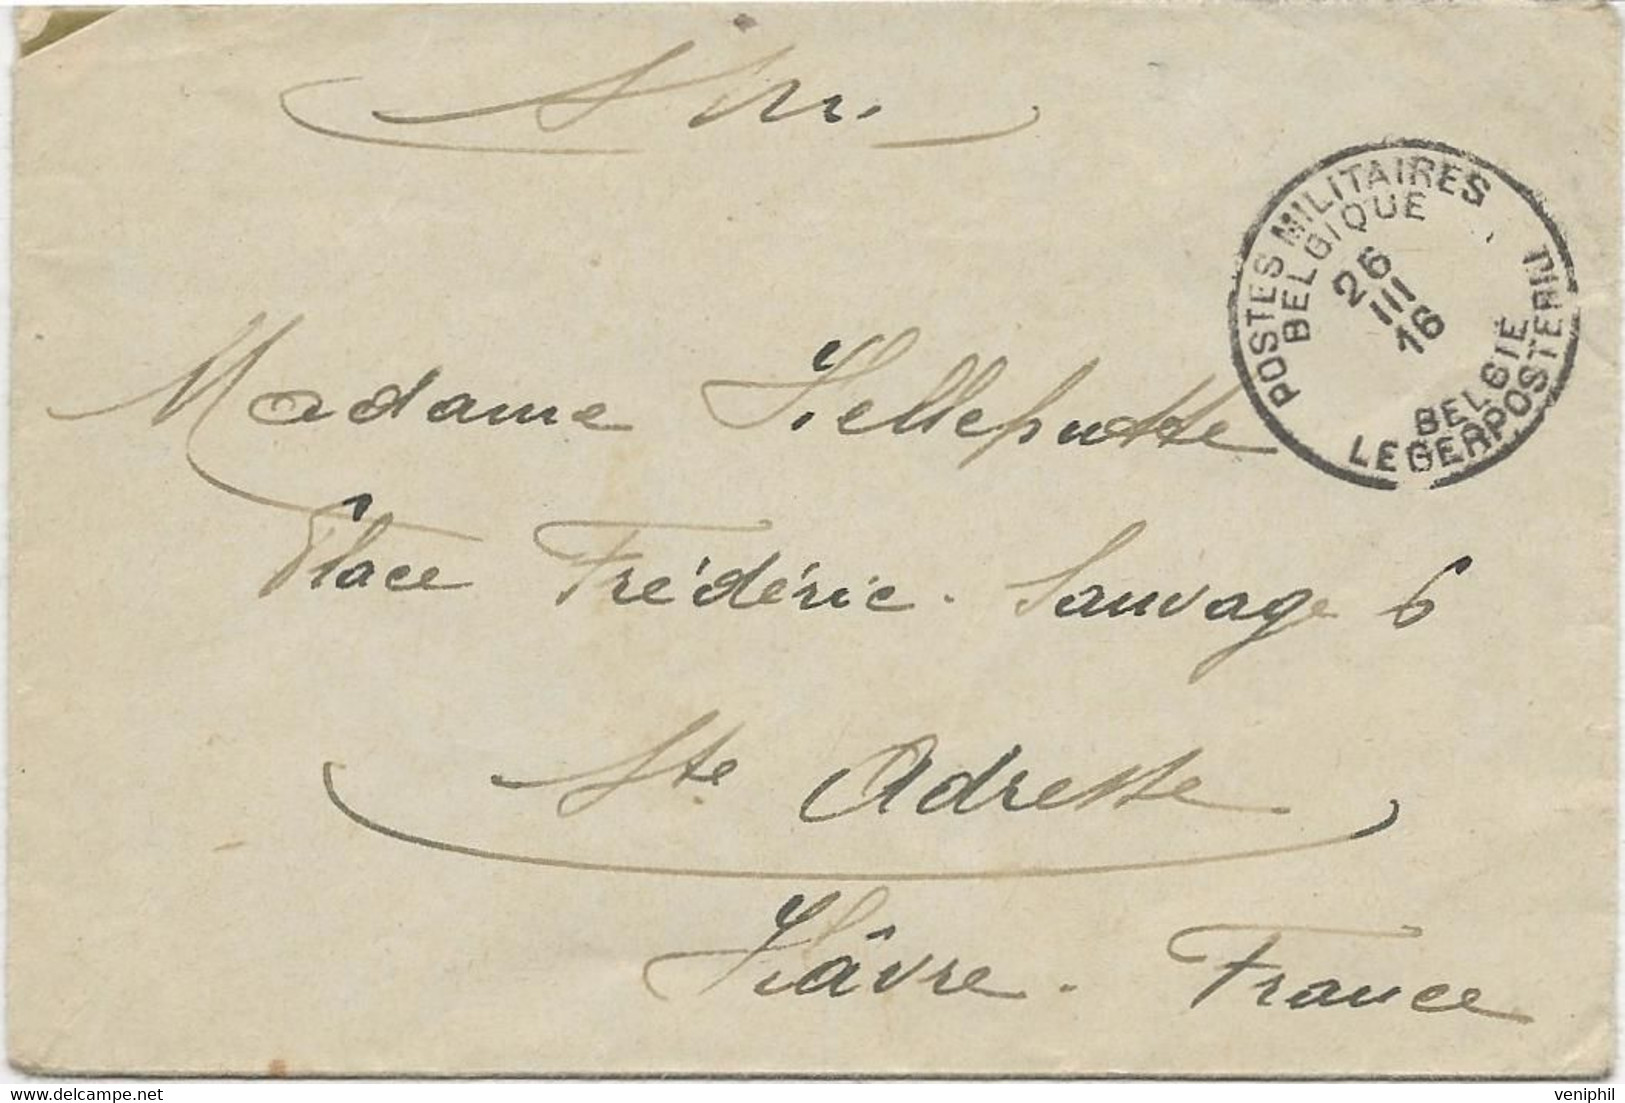 S.M.
POSTES MILITAIRES
BELGIQUE
26
III
16
BELGIE
LEGERPOSTERIJ
Madame Helleputte
Place Frédéric-Sauvage 6
Ste Adresse
Hâvre - France
veniphil